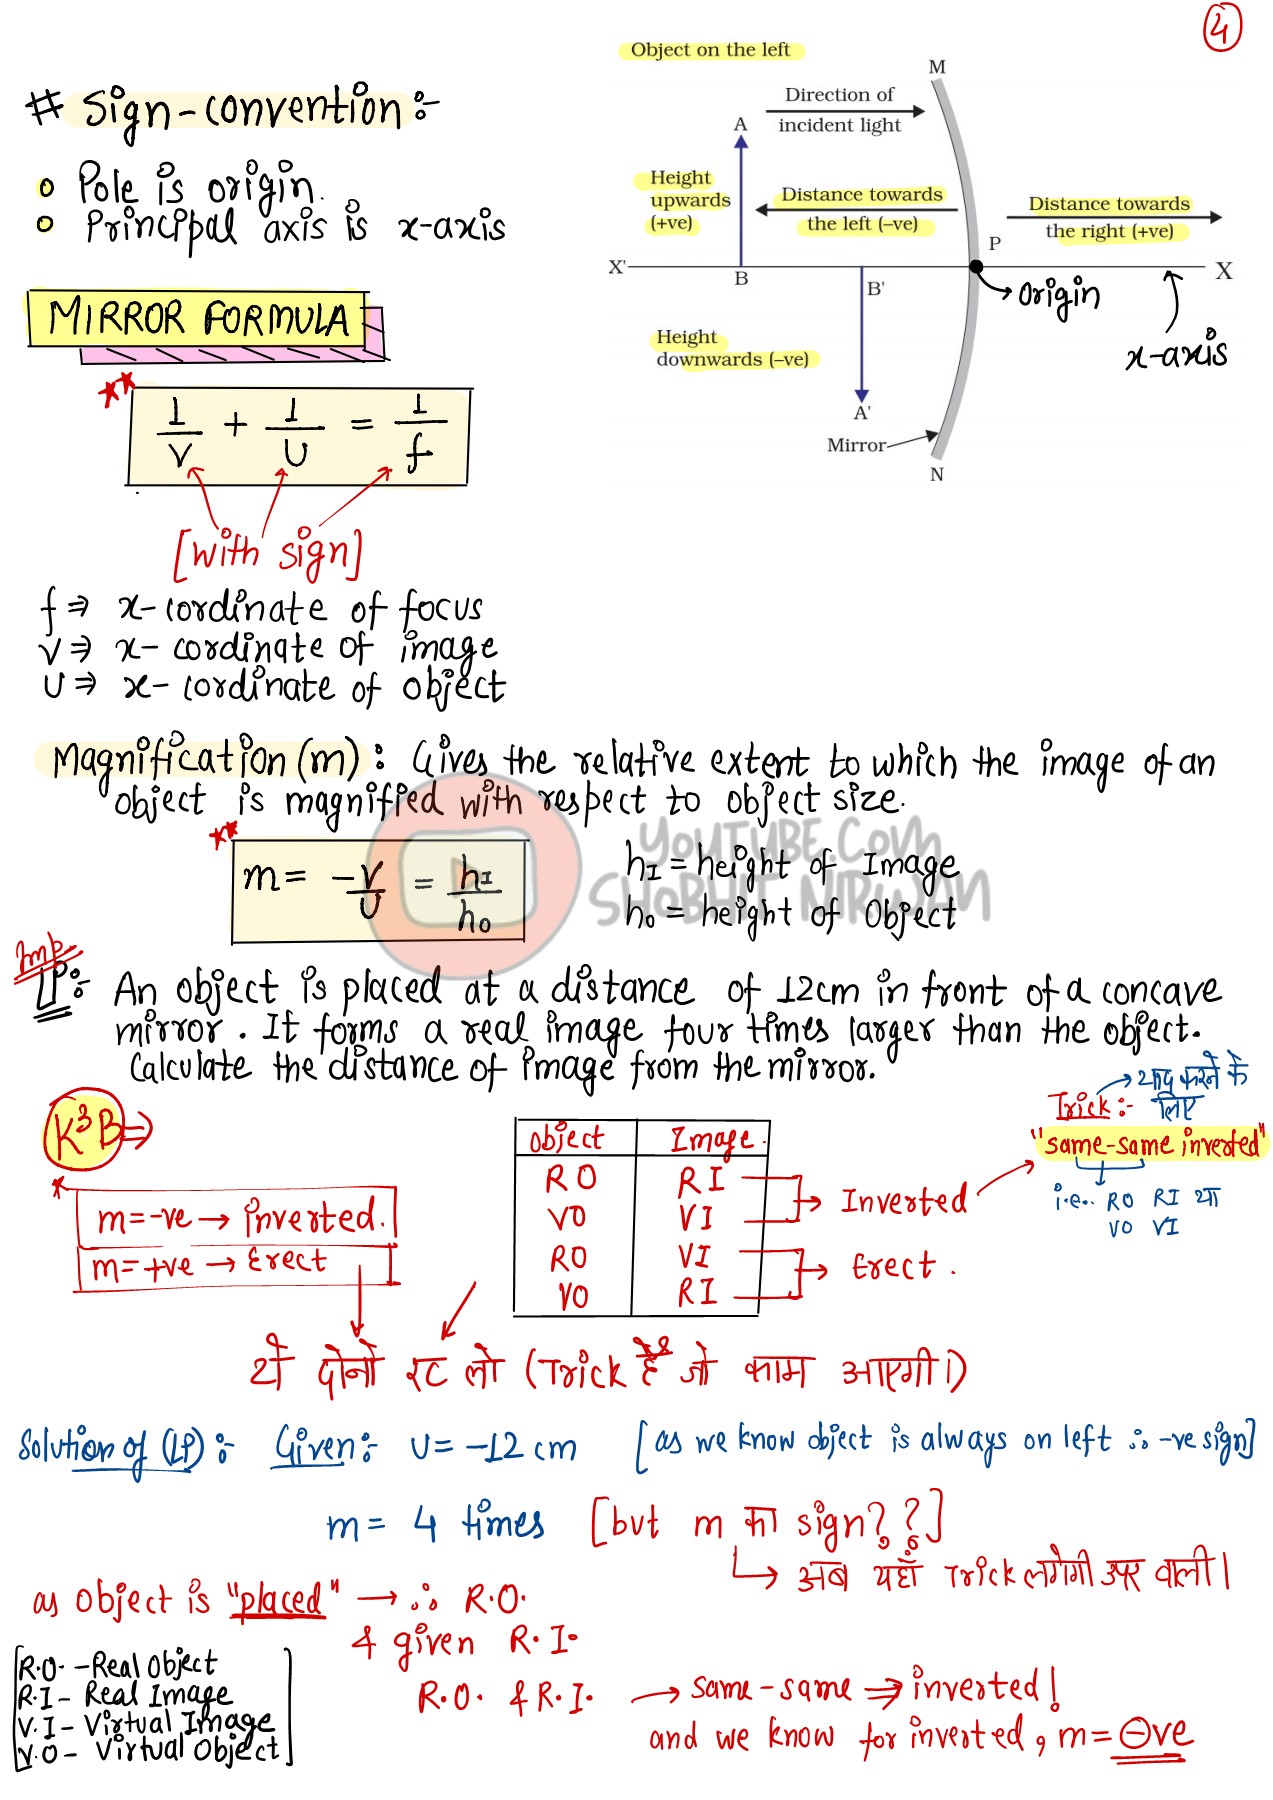 4
Object on the left
# Sign-convention:-
Pole is origin.
Principal axis is x-axis
M
Direction of
incident light
A
Height
upwards
(+ve)
Distance towards
the left (–ve)
Distance towards
the right (+ve)
P
X'
B
B'
X
Origin
x-axis
Height
downwards (–ve)
A'
Mirror
N
MIRROR FORMULA
** 1/v + 1/u = 1/f
[with sign]
f ⇒ x-cordinate of focus
v ⇒ x-cordinate of image
u ⇒ x-cordinate of object
Magnification (m): Gives the relative extent to which the image of an
object is magnified with respect to object size.
** m = -v/u = hI/ho
hI = height of Image
ho = height of Object
YOUTUBE.COM
SHOBHIT NIRWAN
Imp.
LP:- An object is placed at a distance of 12cm in front of a concave
mirror. It forms a real image four times larger than the object.
Calculate the distance of image from the mirror.
K³B ⇒
* m = -ve → inverted.
m = +ve → Erect
Object Image.
RO RI
VO VI
RO VI
VO RI
Inverted
Erect.
Trick:- → याद करने के
लिए
"same-same inverted"
i.e.. RO RI या
VO VI
ये दोनो रट लो (Trick है जो काम आएगी।)
Solution of (LP):- Given:- u = -12 cm [as we know object is always on left ∴ -ve sign]
m = 4 times [but m का sign??]
→ अब यहाँ Trick लगेगी उपर वाली।
as object is "placed" → ∴ R.O.
& given R.I.
R.O. & R.I. → same-same ⇒ inverted!
and we know for inverted, m = ⊖ve
R.O. - Real Object
R.I - Real Image
V.I - Virtual Image
V.O - Virtual Object